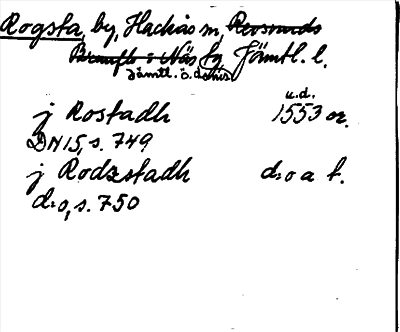 Rogsta, by, Hackås sn, Revsunds
Brunflo o Näs tg Jämtl. l.
Jämtl. ö. doms.
j Rostadh u.d. 1553 or.
DN 15, s. 749
j Rodzstadh d:o a t.
d:o, s. 750